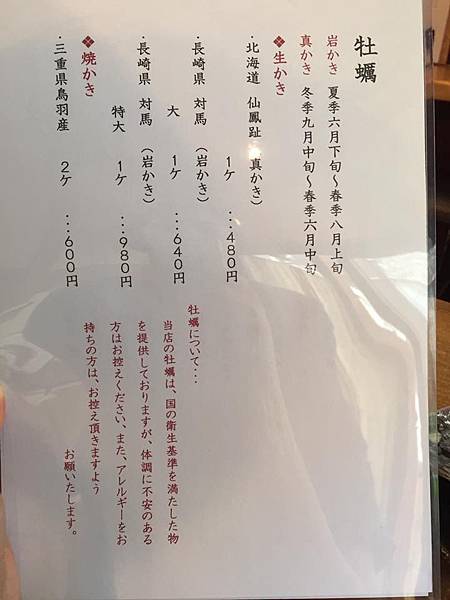 牡蠣
岩かき 夏季六月下旬〜春季八月上旬
真かき 冬季九月中旬〜春季六月中旬
❖生かき
・北海道 仙鳳趾 真かき)
1ケ ・・・480円
・長崎県 対馬 (岩かき)
大 1ケ ・・・640円
・長崎県 対馬 (岩かき)
特大 1ケ ・・・980円
❖焼かき
・三重県鳥羽産 2ケ ・・・600円
牡蠣について・・・
当店の牡蠣は、国の衛生基準を満たした物
を提供しておりますが、体調に不安のある
方はお控えください、また、アレルギーをお
持ちの方は、お控え頂きますよう
お願いたします。